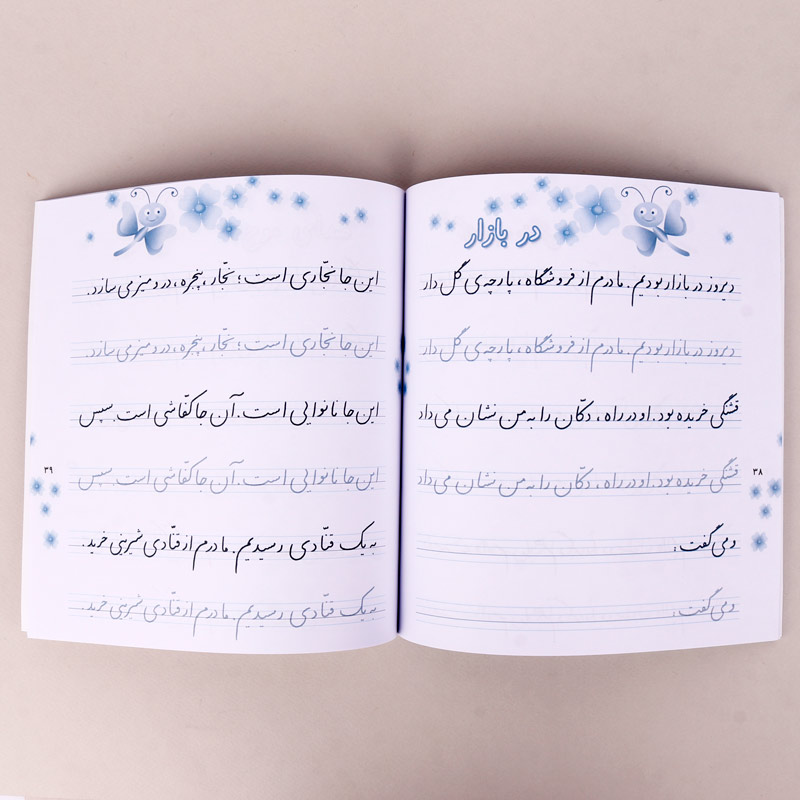 در بازار
دیروز در بازار بودیم. مادرم از فروشگاه، پارچه‌ی گل دار
دیروز در بازار بودیم. مادرم از فروشگاه، پارچه‌ی گل دار
قشنگی خریده بود. او در راه، دکّان را به من نشان می‌داد
قشنگی خریده بود. او در راه، دکّان را به من نشان می‌داد
و می‌گفت:
و می‌گفت:
۳۸
این جا نجّاری است؛ نجّار، پنجره، در و میز می‌سازد.
این جا نجّاری است؛ نجّار، پنجره، در و میز می‌سازد.
این جا نانوایی است. آن جا کفّاشی است. سپس
این جا نانوایی است. آن جا کفّاشی است. سپس
به یک قنّادی رسیدیم. مادرم از قنّادی شیرینی خرید.
به یک قنّادی رسیدیم. مادرم از قنّادی شیرینی خرید.
۳۹